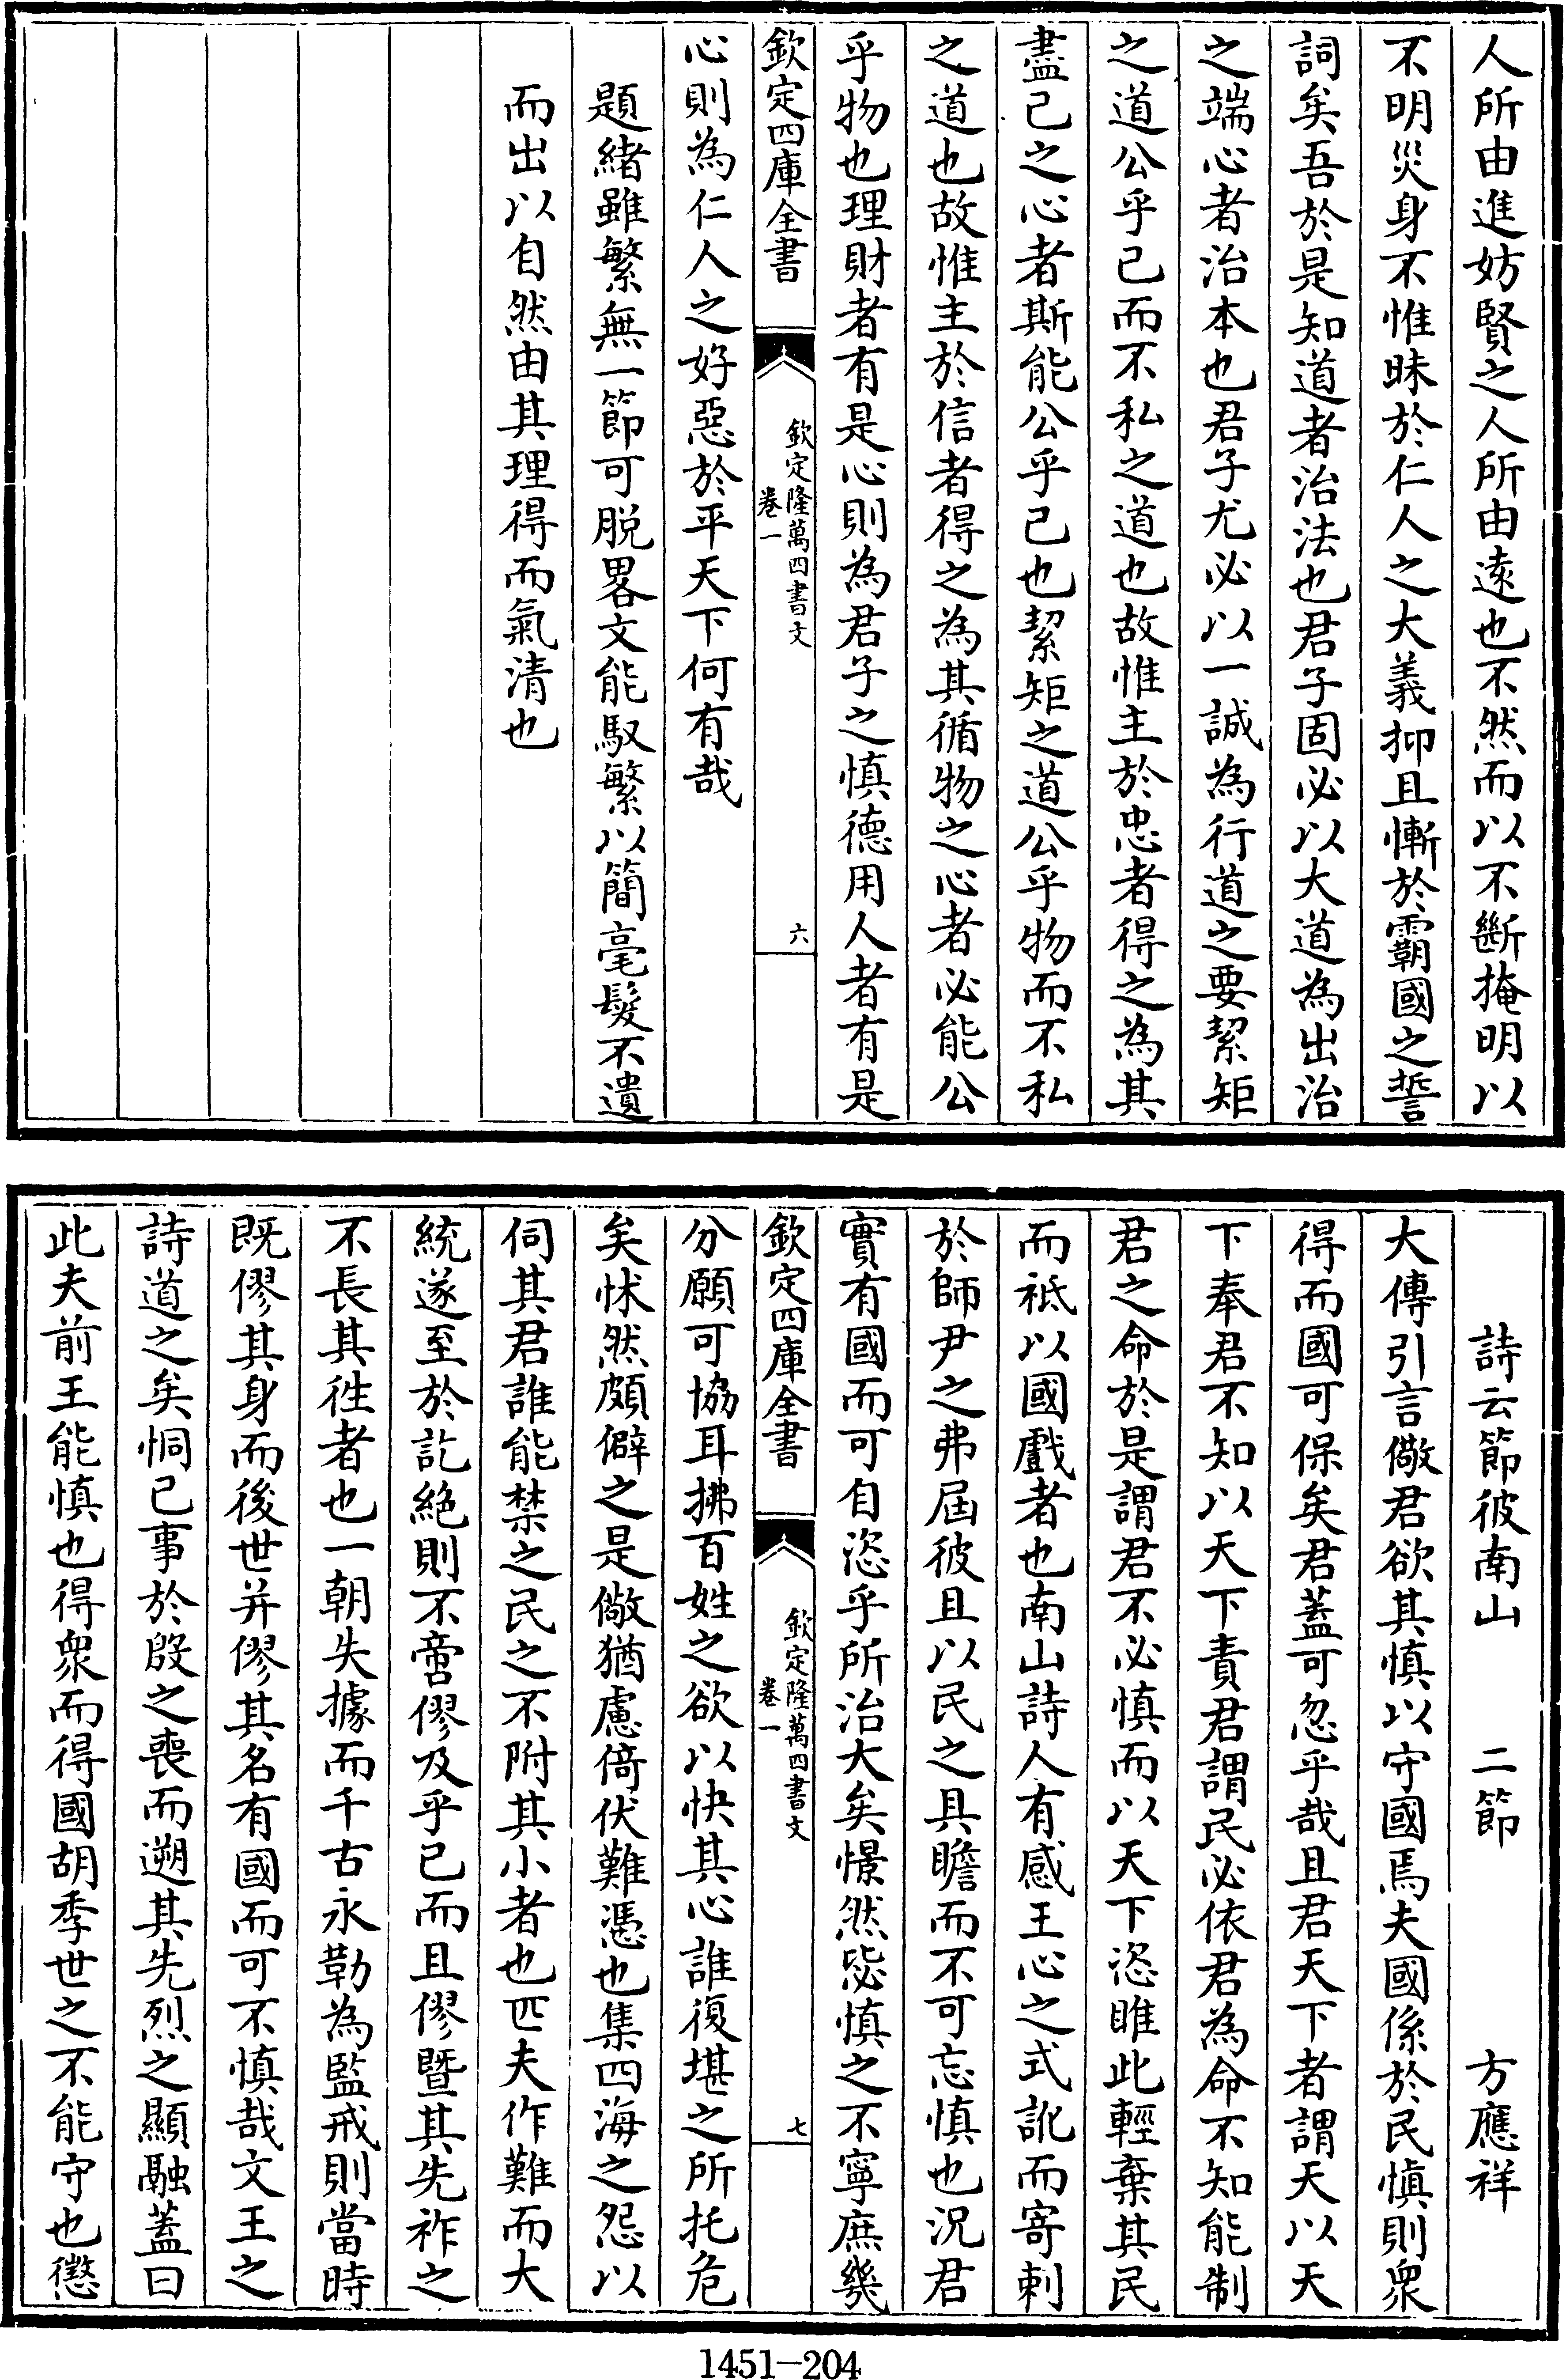 人所由進妨賢之人所由遠也不然而以不斷掩明以
不明災身不惟昧於仁人之大義抑且慚於霸國之誓
詞矣吾於是知道者治法也君子固必以大道為出治
之端心者治本也君子尤必以一誠為行道之要絜矩
之道公乎已而不私之道也故惟主於忠者得之為其
盡已之心者斯能公乎已也絜矩之道公乎物而不私
之道也故惟主於信者得之為其循物之心者必能公
乎物也理財者有是心則為君子之慎德用人者有是
欽定四庫全書
欽定隆萬四書文
卷一
六
心則為仁人之好惡於平天下何有哉
題緒雖繁無一節可脱畧文能馭繁以簡毫髮不遺
而出以自然由其理得而氣清也
詩云節彼南山 二節 方應祥
大傳引言儆君欲其慎以守國焉夫國係於民慎則衆
得而國可保矣君蓋可忽乎哉且君天下者謂天以天
下奉君不知以天下責君謂民必依君為命不知能制
君之命於是謂君不必慎而以天下恣睢此輕棄其民
而祗以國戲者也南山詩人有感王心之式訛而寄刺
於師尹之弗屆彼且以民之具瞻而不可忘慎也況君
實有國而可自恣乎所治大矣憬然毖慎之不寧庶幾
欽定四庫全書
欽定隆萬四書文
卷一
七
分願可協耳拂百姓之欲以快其心誰復堪之所托危
矣怵然頗僻之是儆猶慮倚伏難憑也集四海之怨以
伺其君誰能禁之民之不附其小者也匹夫作難而大
統遂至於訖絶則不啻僇及乎已而且僇暨其先祚之
不長其徃者也一朝失據而千古永勒為監戒則當時
既僇其身而後世并僇其名有國而可不慎哉文王之
詩道之矣恫已事於殷之喪而遡其先烈之顯融蓋曰
此夫前王能慎也得衆而得國胡季世之不能守也懲
1451-204